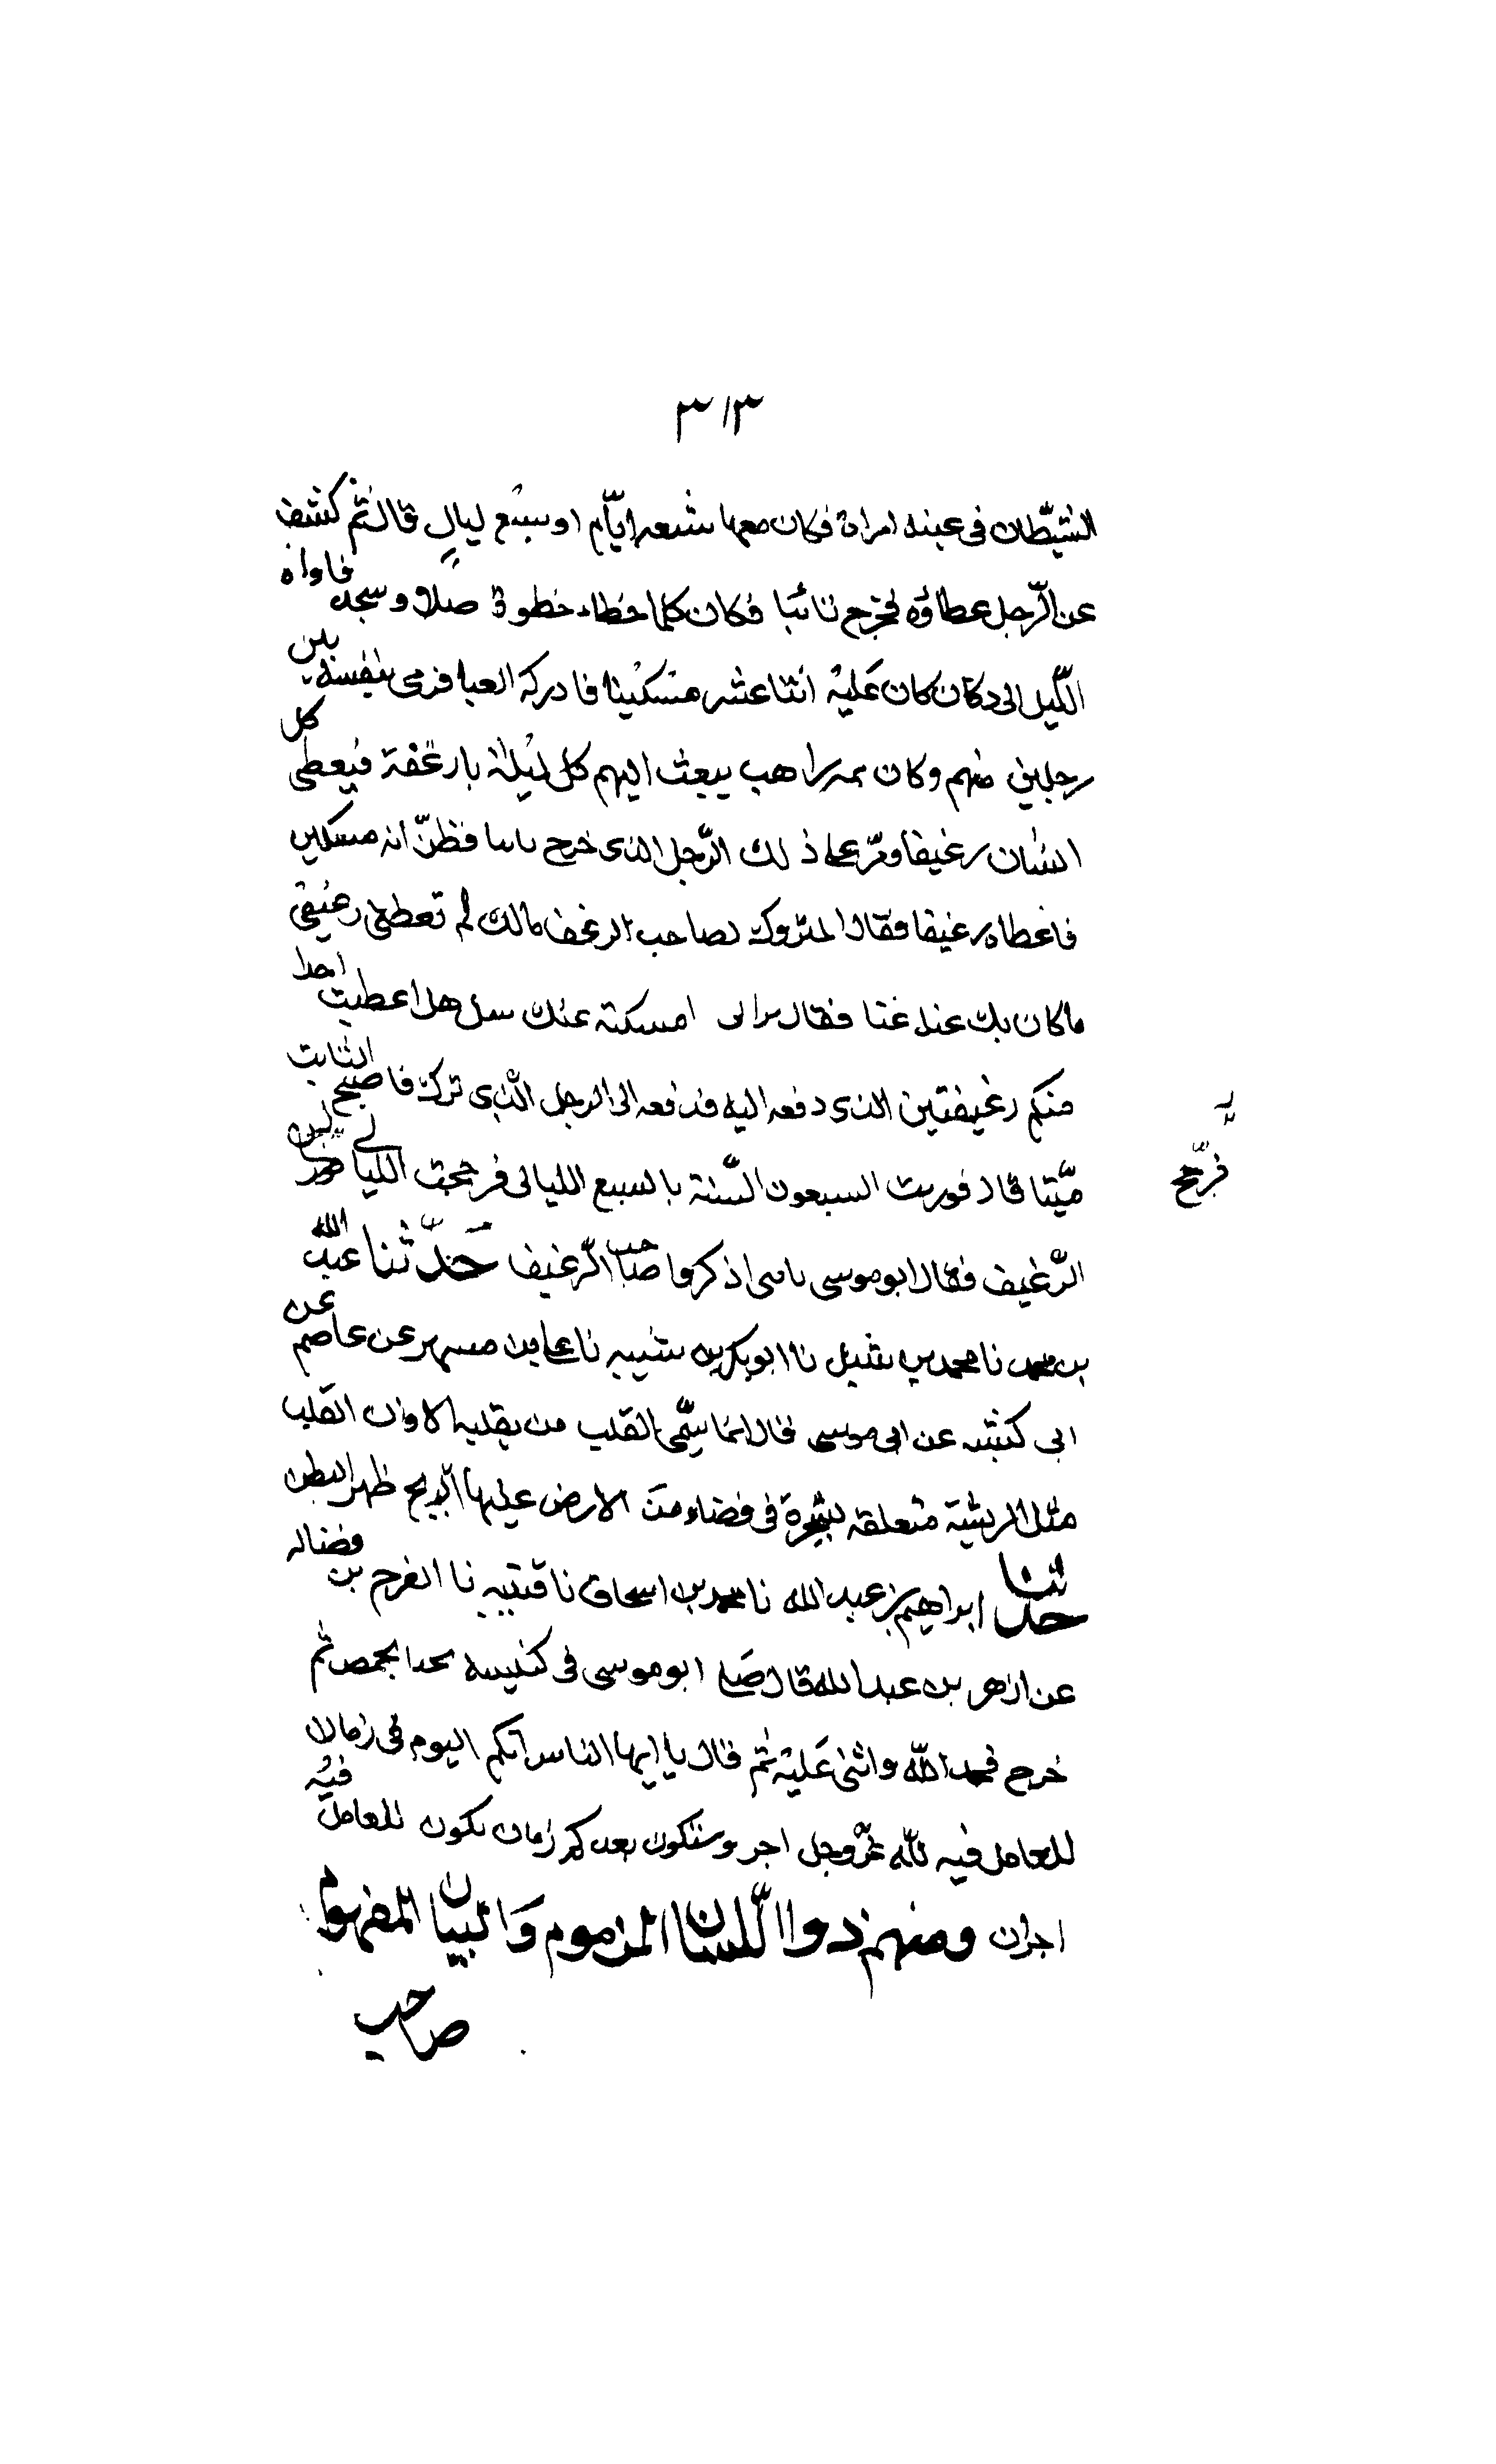 ٣١٣
الشيطان في عينه امراة فكان معها سبعة ايّام او سبع ليالٍ قال ثم كشف
عن الرّجل عطاؤه فخرج تائبا فكان كلما خطا خطوة صلا وسجد فاواه
اللّيل الى دكان كان عَليه اثنا عشر مسكينا فادركه العيا فرمى بنفسه بين
رجلين منهم وكان ثم راهب يبعث اليهم كل ليلة بارغفة فيعطى كل
انسان رغيفا ومرّ على ذلك الرّجل الذى خرج تائبا فظنّ انه مسكين
فاعطاه رغيفا فقال المتروك لصاحب الرغف مالك لم تعطنى رغيفى
ما كان بك عند غنا فقال تراني امسكته عنك سل هل اعطيت احدا
منكم رغيفين الذى دفعه اليه فدفعه الى الرجل الّذى ترك فاصبح التائب
ميّتا قال فوزنت السبعون السّنة بالسبع الليالى فرجحت الليالي
فرجّح
الرّغيف فقال ابو موسى يا بنى اذكروا صاحب الرّغيف حَدّثنا عبد الله
بن محمد نا محمد بن شبل نا ابو بكر بن شيبه نا على بن مسهر عن عاصم عن
ابى كبشه عن ابى موسى قال انما سمّى القلب من تقلبه الا وان القلب
مثل الريشة متعلقه بشجرة في فضاء من الارض عليها الريح ظهر البطن
حدثنا ابراهيم بن عبد الله نا محمد بن اسحاق نا قتيبه نا الفرج بن فضاله
عن ازهر بن عبد الله قال صَلى ابو موسى في كنيسه يحنا بحمص ثم
خرج فحمد الله واثنى عَليه ثم قال يا ايها الناس انكم اليوم في زمان
للعامل فيه للّه عزّ وجل اجر وستكون بعدكم زمان يكون للعامل فيه
اجران ومنهم ذو اللّسان المزموم وَالبيان المفهوم
صاحب